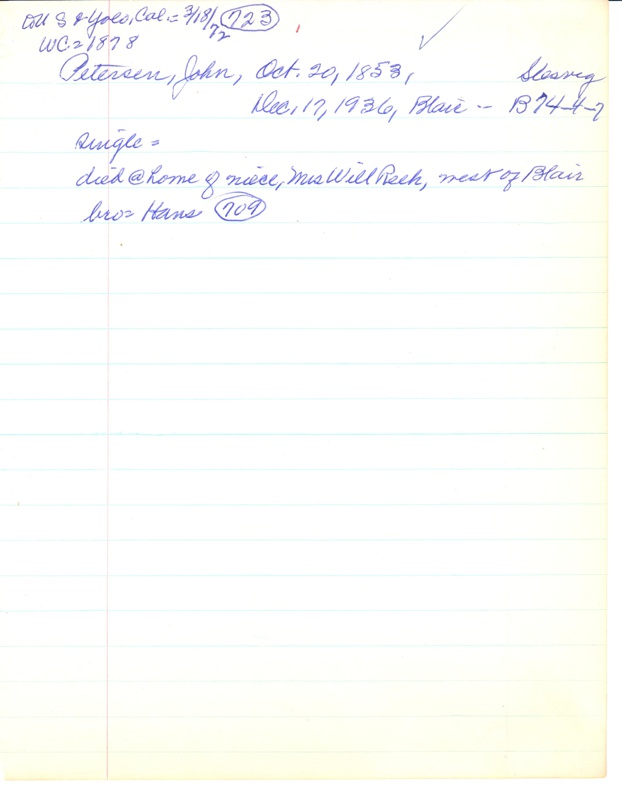 to U S & Yolo, Cal. = 3/18/72 723
WC = 1878
Petersen, John, Oct. 20, 1853, Slesvig
Dec. 17, 1936, Blair -- B74-4-7
single =
died @ home of niece, Mrs Will Reeh, west of Blair
bro = Hans 709